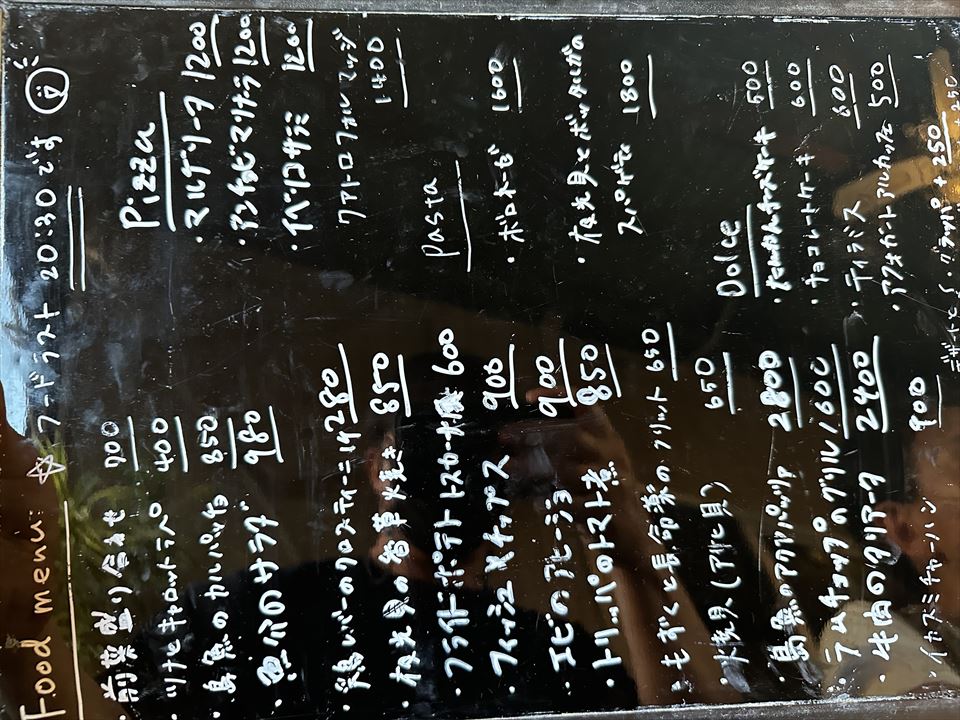 Food menu: ☆フードラスト 20:30です
・前菜盛り合わせ 900
・ツナとキャロットラペ 400
・島魚のカルパッチョ 850
・のサラダ 980
・レバーのクロスティーニ 280
・夜光貝の香草焼き 850
・フライドポテト トスカーナ風 600
・フィッシュ×チップス 900
・エビのアヒージョ 900
・トリッパのトマト煮 850
・もずくと長命薬のフリット 650
・貝(アサヒ貝) 650
・島魚のアクアパッツァ 2800
・ラムチョップのグリル 1600
・牛肉のタリアータ 2400
・イカスミチャーハン 900
Pizza
・マルゲリータ 1200
・アンチョビマリナーラ 1200
・イベリコサラミ 1200
クアトロフォルマッジ 1400
Pasta
・ボロネーゼ 1600
・夜光貝とボッタルガの
スパゲティ 1800
Dolce
・チーズケーキ 500
・チョコレートケーキ 600
・ティラミス 600
・アフォガートアルカッフェ 500
グラッパ +250